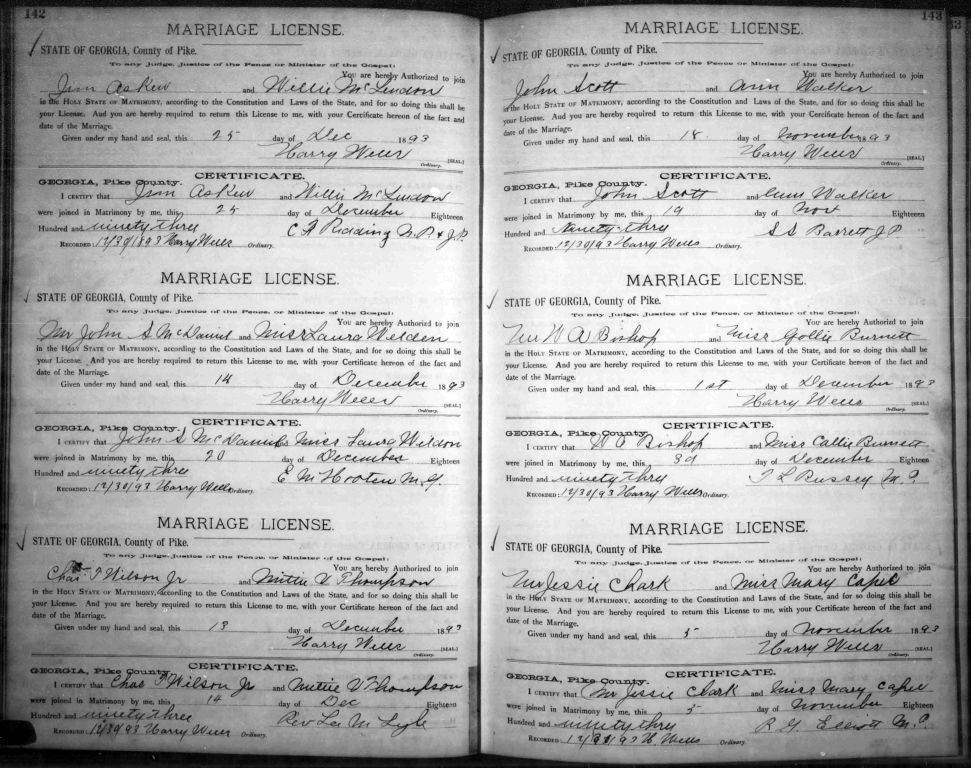 142
MARRIAGE LICENSE.
STATE OF GEORGIA, County of Pike.
To any Judge, Justice of the Peace or Minister of the Gospel:
You are hereby Authorized to join
Jim Askew and Willie McLindon
in the HOLY STATE OF MATRIMONY, according to the Constitution and Laws of the State, and for so doing this shall be
your License. And you are hereby required to return this License to me, with your Certificate hereon of the fact and
date of the Marriage.
Given under my hand and seal, this 25 day of Dec 1893
Harry Wells [SEAL]
Ordinary.
CERTIFICATE.
GEORGIA, Pike County.
I CERTIFY that Jim Askew and Willie McLindon
were joined in Matrimony by me, this 25 day of December Eighteen
Hundred and ninety three C A Ridding N.P. & J.P.
RECORDED: 12/30/1893 Harry Wells Ordinary.
MARRIAGE LICENSE.
STATE OF GEORGIA, County of Pike.
To any Judge, Justice of the Peace, or Minister of the Gospel:
You are hereby Authorized to join
Mr John S McDaniel and Miss Laura Weldon
in the HOLY STATE OF MATRIMONY, according to the Constitution and Laws of the State, and for so doing this shall be
your License. And you are hereby required to return this License to me, with your Certificate hereon of the fact and
date of the Marriage.
Given under my hand and seal, this 14 day of December 1893
Harry Wells [SEAL]
Ordinary.
CERTIFICATE.
GEORGIA, Pike County.
I CERTIFY that John S McDaniel & Miss Laura Weldon
were joined in Matrimony by me, this 20 day of December Eighteen
Hundred and ninety three E M Hooten M.G.
RECORDED: 12/30/93 Harry Wells Ordinary.
MARRIAGE LICENSE.
STATE OF GEORGIA, County of Pike.
To any Judge, Justice of the Peace, or Minister of the Gospel:
You are hereby Authorized to join
Chas. T Wilson Jr and Mittie V Thompson
in the HOLY STATE OF MATRIMONY, according to the Constitution and Laws of the State, and for so doing this shall be
your License. And you are hereby required to return this License to me, with your Certificate hereon of the fact and
date of the Marriage.
Given under my hand and seal, this 13 day of December 1893
Harry Wells [SEAL]
Ordinary.
CERTIFICATE.
GEORGIA, Pike County.
I CERTIFY that Chas T Wilson Jr and Mittie V Thompson
were joined in Matrimony by me, this 14 day of Dec Eighteen
Hundred and ninety three Rev Lee M
RECORDED: 12/30/93 Harry Wells Ordinary.
143
33
MARRIAGE LICENSE.
STATE OF GEORGIA, County of Pike.
To any Judge, Justice of the Peace or Minister of the Gospel:
You are hereby Authorized to join
John Scott and Ann Walker
in the HOLY STATE OF MATRIMONY, according to the Constitution and Laws of the State, and for so doing this shall be
your License. And you are hereby required to return this License to me, with your Certificate hereon of the fact and
date of the Marriage.
Given under my hand and seal, this 18 day of November 1893
Harry Wells [SEAL]
Ordinary.
CERTIFICATE.
GEORGIA, Pike County.
I CERTIFY that John Scott and Ann Walker
were joined in Matrimony by me, this 19 day of Nov Eighteen
Hundred and Ninety thry S S Barrett J P
RECORDED: 12/30/93 Harry Wells Ordinary.
MARRIAGE LICENSE.
STATE OF GEORGIA, County of Pike.
To any Judge, Justice of the Peace, or Minister of the Gospel:
You are hereby Authorized to join
Mr W A Bishop and Miss Gollie Burnett
in the HOLY STATE OF MATRIMONY, according to the Constitution and Laws of the State, and for so doing this shall be
your License. And you are hereby required to return this License to me, with your Certificate hereon of the fact and
date of the Marriage.
Given under my hand and seal, this 1st day of December 1893
Harry Wells [SEAL]
Ordinary.
CERTIFICATE.
GEORGIA, Pike County.
I CERTIFY that W A Bishop and Miss Callie Burnett
were joined in Matrimony by me, this 3d day of December Eighteen
Hundred and ninety thry T L Bussey M G
RECORDED: 12/30/93 Harry Wells Ordinary.
MARRIAGE LICENSE.
STATE OF GEORGIA, County of Pike.
To any Judge, Justice of the Peace, or Minister of the Gospel:
You are hereby Authorized to join
Mr Jessie Clark and Miss Mary Capel
in the HOLY STATE OF MATRIMONY, according to the Constitution and Laws of the State, and for so doing this shall be
your License. And you are hereby required to return this License to me, with your Certificate hereon of the fact and
date of the Marriage.
Given under my hand and seal, this 5 day of November 1893
Harry Wells [SEAL]
Ordinary.
CERTIFICATE.
GEORGIA, Pike County.
I CERTIFY that Mr Jessie Clark and Miss Mary Capel
were joined in Matrimony by me, this 5 day of November Eighteen
Hundred and ninety thry R. G. Elliott M.G.
RECORDED: H. Wells Ordinary.